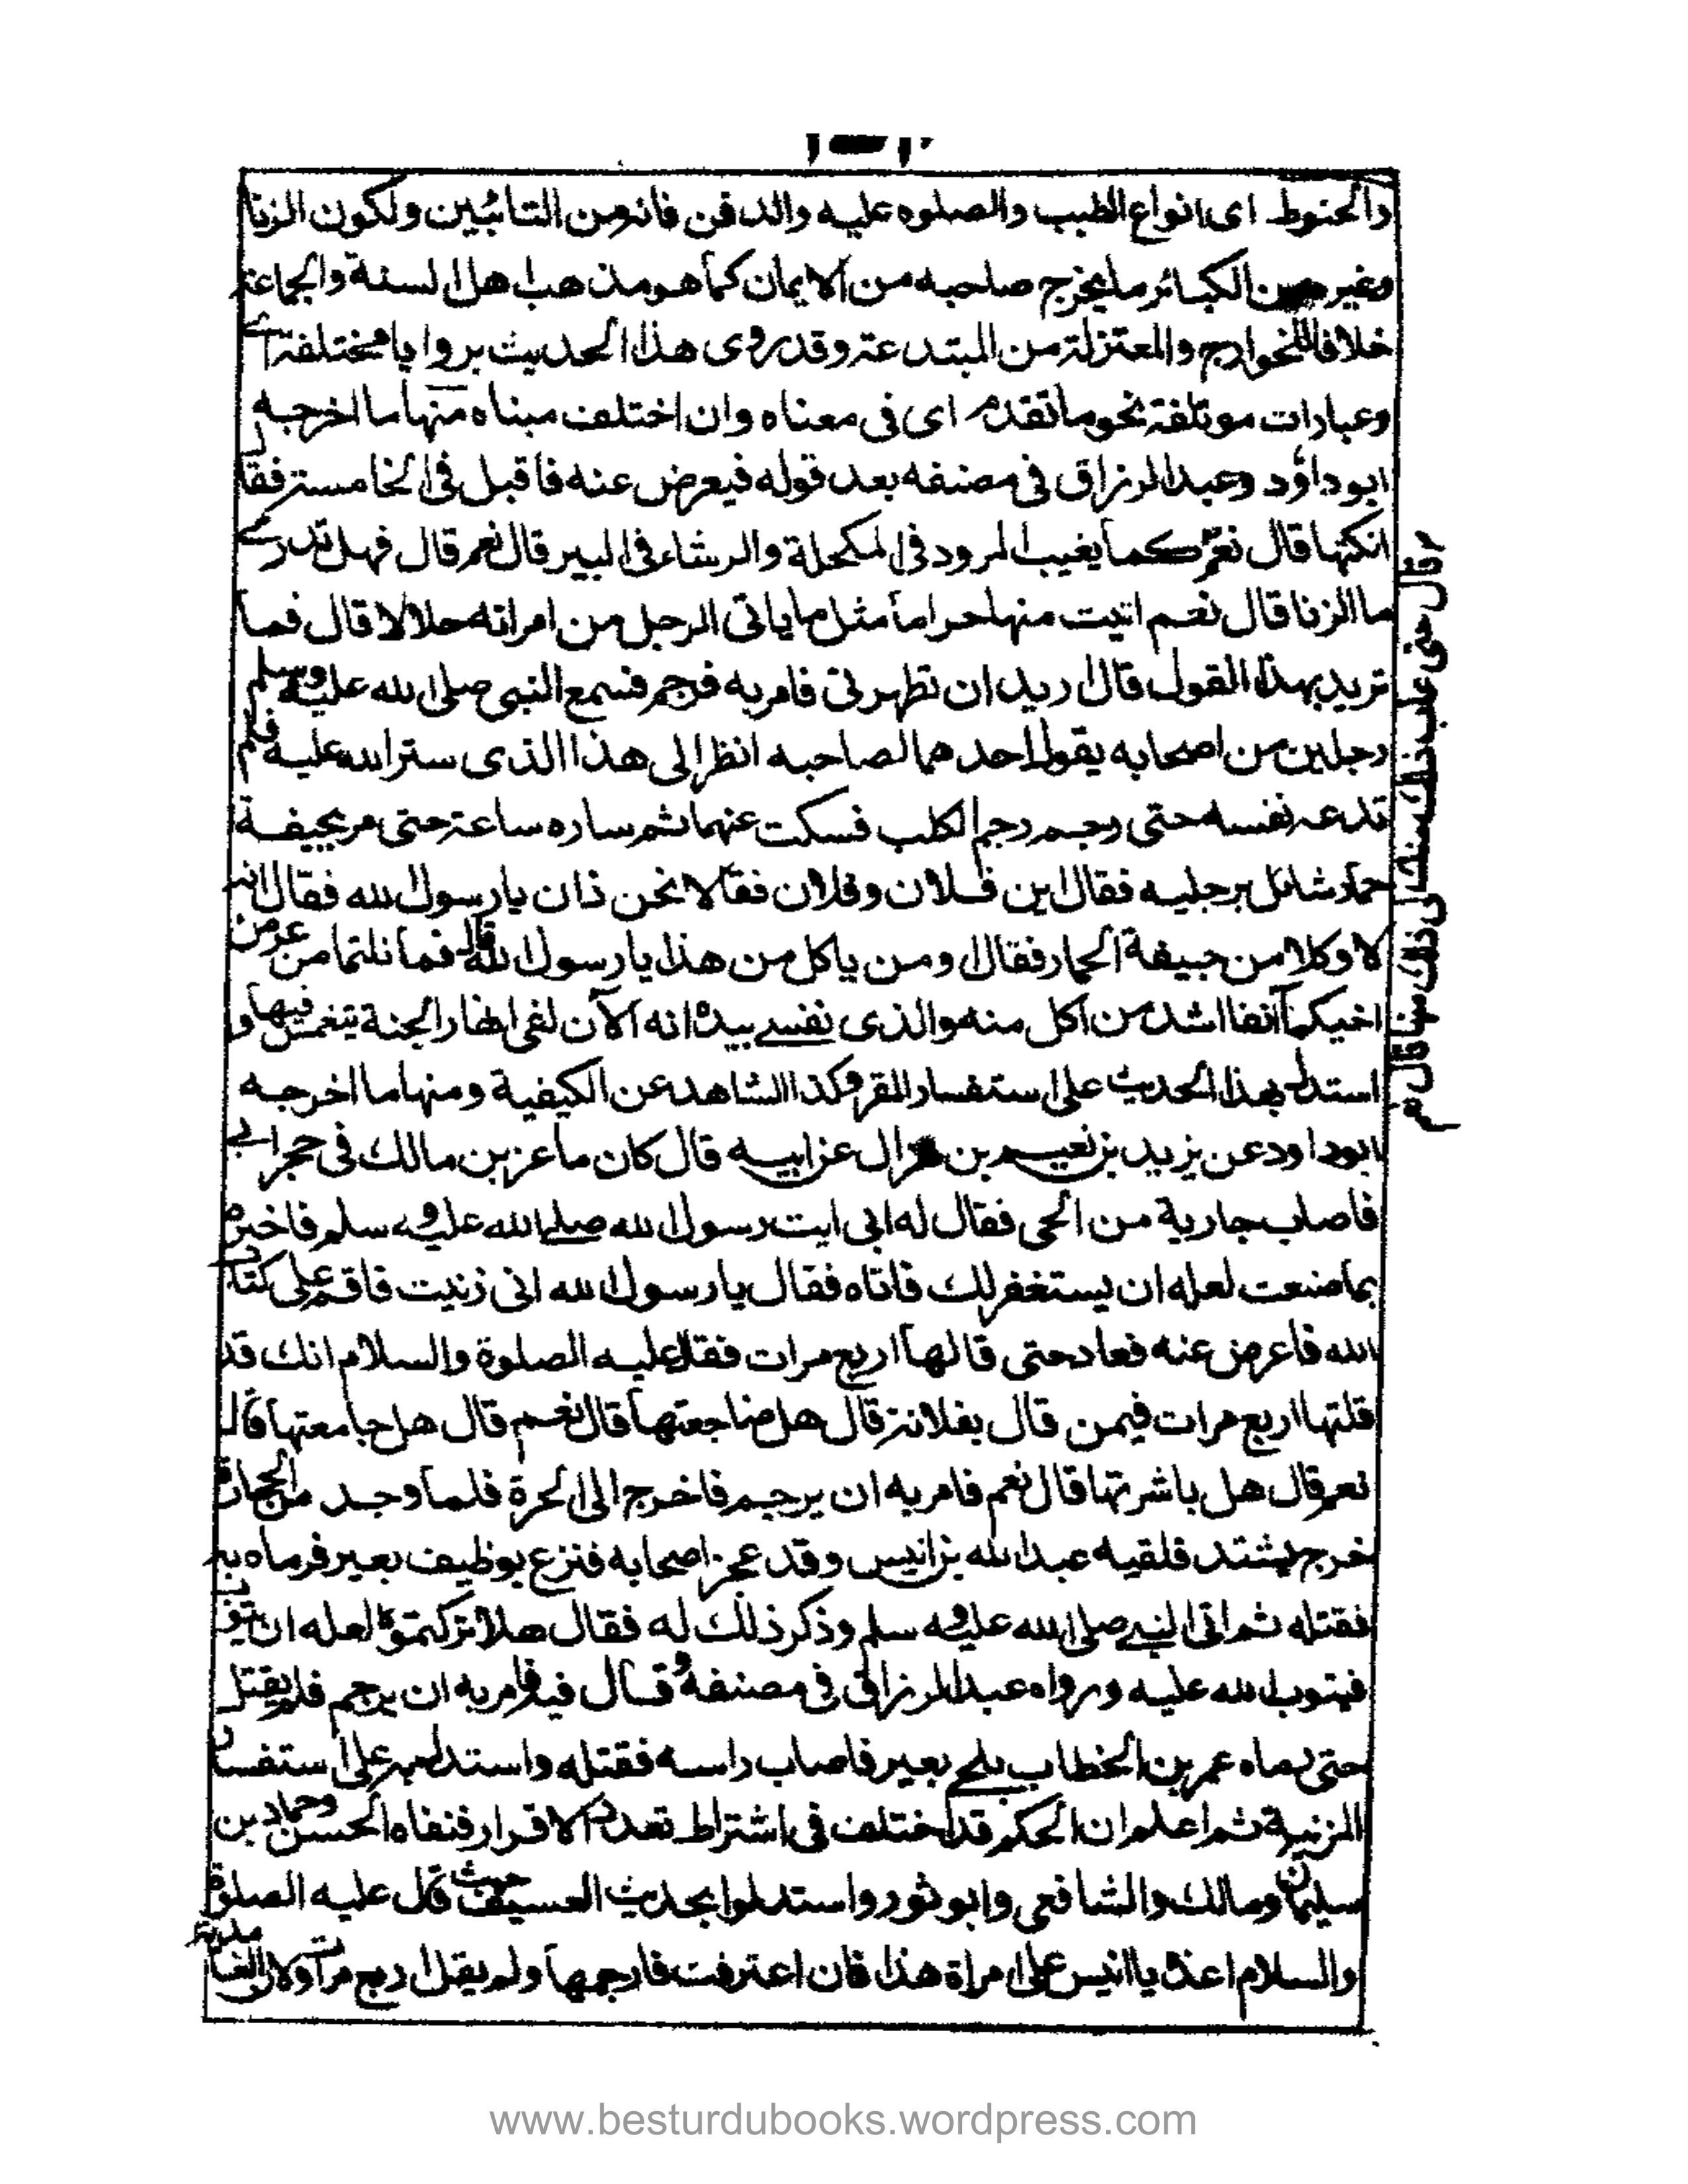 والحنوط اى انواع الطيب والصلوه عليه والدفن فانه من التائبين ولكون الزنا
وغيره من الكبائر ما يخرج صاحبه من الايمان كما هو مذهب اهل السنة والجماعة
خلافا للخوارج والمعتزلة من المبتدعة وقد روى هذا الحديث بروايا مختلفة اے
وعبارات موتلفة نحو ما تقدم اى فى معناه وان اختلف مبناه منها ما اخرجه
ابوداؤد وعبدالرزاق فى مصنفه بعد قوله فيعرض عنه فاقبل فى الخامسة فقال
انكتها قال نعم كما يغيب المرود فى المكحلة والرشاء فى البير قال نعم قال فهل تدرے
ما الزنا قال نعم اتيت منها حراما مثل ما ياتى الرجل من امراته حلالا قال فما
تريد بهذا القول قال اريد ان تطهرنى فامر به فرجم فسمع النبى صلى الله عليه وسلم
رجلين من اصحابه يقول احدهما لصاحبه انظر الى هذا الذى ستر الله عليه فلم
تدعه نفسه حتى رجم رجم الكلب فسكت عنهما ثم ساره ساعة حتى مر بجيفة
حمار شائل برجليه فقال اين فلان وفلان فقالا نحن ذان يا رسول الله فقال انزلا
وكلا من جيفة الحمار فقالا ومن ياكل من هذا يا رسول الله قال فما نلتما من عرض
اخيكما آنفا اشد من اكل منه والذى نفسے بيده انه الآن لفى انهار الجنة ينغمس فيها و
استدل بهذا الحديث على استفسار المقر وكذا الشاهد عن الكيفية ومنها ما اخرجه
ابوداود عن يزيد بن نعيم بن هزال عن ابيه قال كان ماعز بن مالك فى حجر ابى
فاصاب جارية من الحى فقال له ابى ايت رسول الله صلے الله عليه وسلم فاخبره
بما صنعت لعله ان يستغفر لك فاتاه فقال يا رسول الله انى زنيت فاقم على كتاب
الله فاعرض عنه فعاد حتى قالها اربع مرات فقال عليه الصلوة والسلام انك قد
قلتها اربع مرات فيمن قال بفلانة قال هل ضاجعتها قال نعم قال هل جامعتها قال
نعم قال هل باشرتها قال نعم فامر به ان يرجم فاخرج الى الحرة فلما وجد من الحجارة
خرج يشتد فلقيه عبدالله بن انيس وقد عجز اصحابه فنزع بوظيف بعير فرماه به
فقتله ثم اتى النبے صلى الله عليه وسلم وذكر ذلك له فقال هلا تركتموه لعله ان يتوب
فيتوب الله عليه ورواه عبدالرزاق فى مصنفه وقال فيه فامر به ان يرجم فلم يقتل
حتى رماه عمر بن الخطاب بلحى بعير فاصاب راسه فقتله واستدل به على استفسار
المزنية ثم اعلم ان الحكم قد اختلف فى اشتراط تعدد الاقرار فنفاه الحسن وحماد بن
سليمان ومالك والشافعى وابوثور واستدلوا بحديث العسيف حيث قال عليه الصلوة
والسلام اغد يا انيس على امراة هذا فان اعترفت فارجمها ولم يقل اربع مرات ولان الغامدية
قال حتى غاب ذلك منك فى ذلك منها قال نعم
www.besturdubooks.wordpress.com